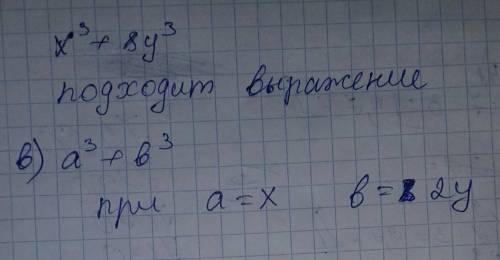 x³ + 8y³
подходит выражение
в) a³ + b³
при a = x b = 2y